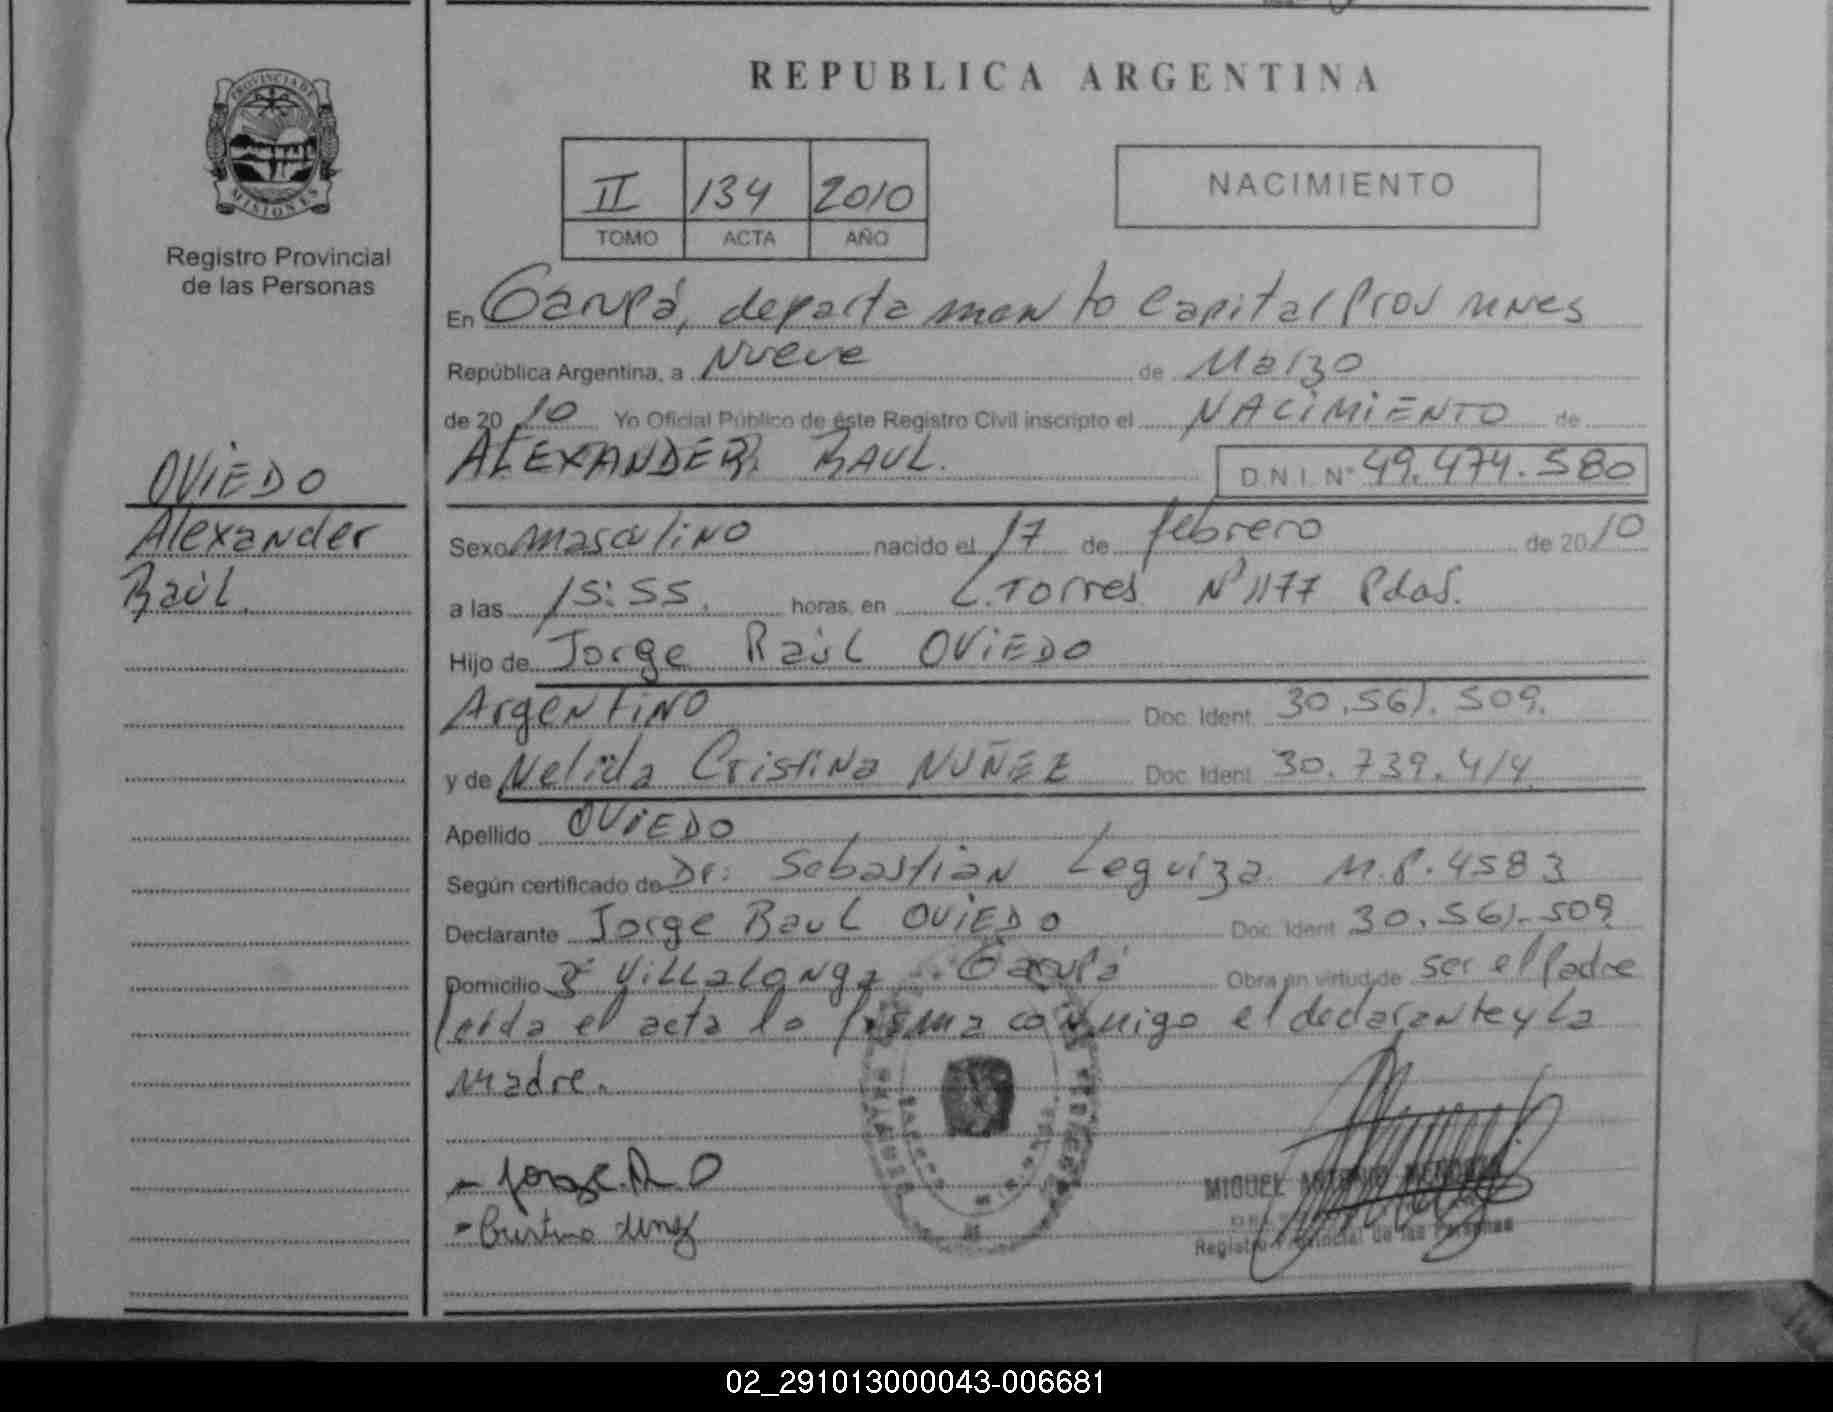 REPUBLICA ARGENTINA
PROVINCIA DE
MISIONES
Registro Provincial
de las Personas
II 134 2010
TOMO ACTA AÑO
NACIMIENTO
En Garupá, departamento Capital Prov mnes
República Argentina, a Nueve de Marzo
de 2010 Yo Oficial Público de éste Registro Civil inscripto el NACIMIENTO de
ALEXANDER RAUL. D.N.I. N° 49.474.580
OVIEDO
Alexander
Raúl
Sexo masculino nacido el 17 de febrero de 2010
a las 15:55. horas, en L. Torres N° 1177 Pdas.
Hijo de Jorge Raúl OVIEDO
Argentino Doc. Ident. 30.561.509.
y de Nelida Cristina NUÑEZ Doc. Ident. 30.739.414
Apellido OVIEDO
Según certificado de Dr: Sebastian Leguiza M.P. 4583
Declarante Jorge Raul OVIEDO Doc. Ident. 30.561.509
Domicilio Bº Villalonga Garupá Obra en virtud de ser el Padre
leida el acta la firma conmigo el declarante y la
madre.
- Jorge. R O
MIGUEL ANTONIO
Registro Provincial de las Personas
02_291013000043-006681